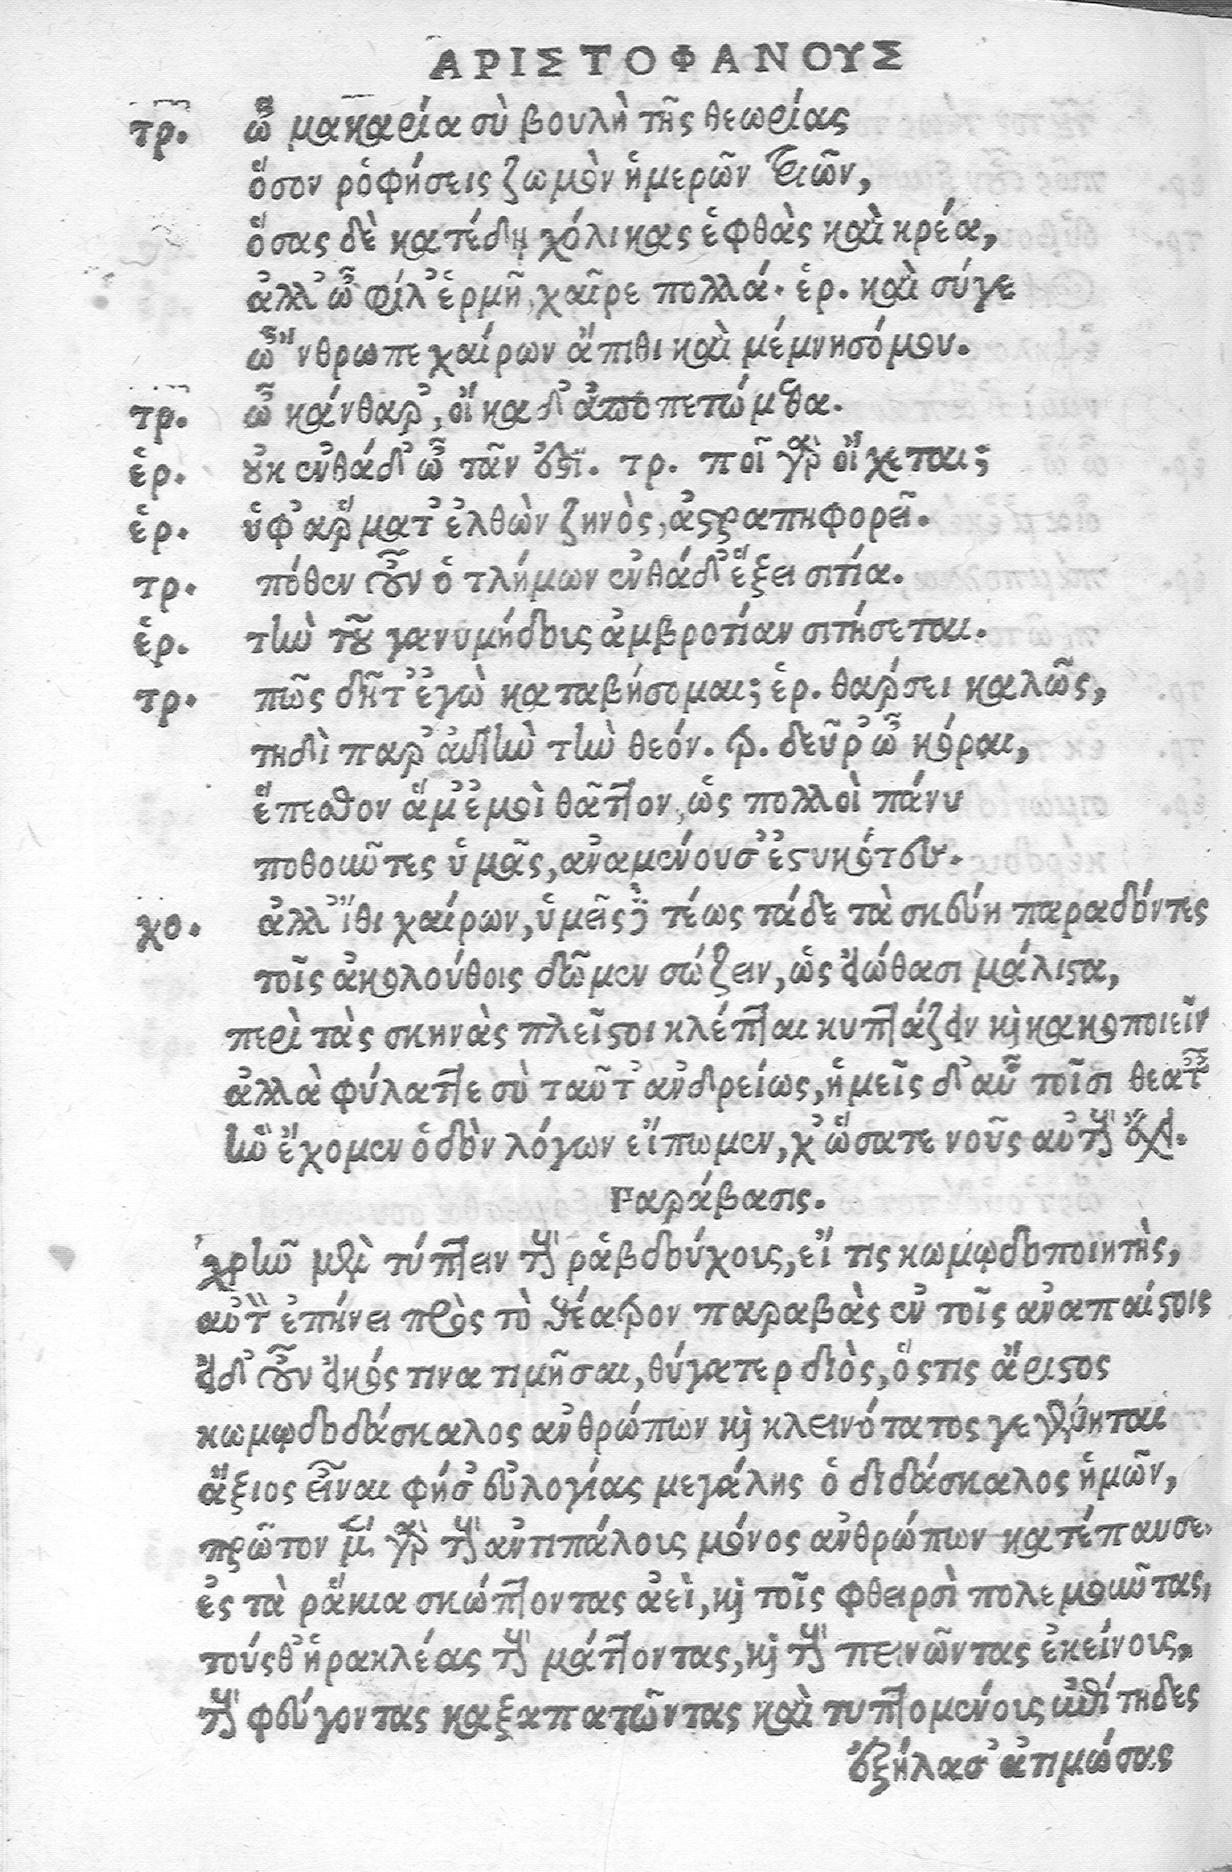 ΑΡΙΣΤΟΦΑΝΟΥΣ
τρ. ὦ μακαρία σὺ βουλὴ τῆς θεωρίας
ὅσον ῥοφήσεις ζωμὸν ἡμερῶν τριῶν,
ὅσας δὲ κατέδῃ χόλικας ἑφθὰς καὶ κρέα,
ἀλλ' ὦ φίλ' ἑρμῆ, χαῖρε πολλά. ἑρ. καὶ σύγε
ὦ "νθρωπε χαίρων ἄπιθι καὶ μέμνησό μου.
τρ. ὦ κάνθαρ', οἴκαδ' ἀποπετώμεθα.
ἑρ. οὐκ ἐνθάδ' ὦ τᾶν ἐστί. τρ. ποῖ γὰρ οἴχεται;
ἑρ. ὑφ' ἅρματ' ἐλθὼν ζηνὸς, ἀστραπηφορεῖ.
τρ. πόθεν οὖν ὁ τλήμων ἐνθάδ' ἕξει σιτία.
ἑρ. τὴν τοῦ γανυμήδους ἀμβροσίαν σιτήσεται.
τρ. πῶς δῆτ' ἐγὼ καταβήσομαι; ἑρ. θάρσει καλῶς,
τηδὶ παρ' αὐτὴν τὴν θεόν. τρ. δεῦρ' ὦ κόραι,
ἕπεσθον ἅμ' ἐμοὶ θᾶττον, ὡς πολλοὶ πάνυ
ποθοῦντες ὑμᾶς, ἀναμένουσ' ἐστυκότες.
χο. ἀλλ' ἴθι χαίρων, ὑμεῖς δὲ τέως τάδε τὰ σκεύη παραδόντες
τοῖς ἀκολούθοις δῶμεν σώζειν, ὡς εἰώθασι μάλιστα,
περὶ τὰς σκηνὰς πλεῖστοι κλέπται κυπτάζειν καὶ κακοποιεῖν
ἀλλὰ φύλαττε σὺ ταῦτ' ἀνδρείως, ἡμεῖς δ' αὖ τοῖσι θεαταῖς
ἣν ἔχομεν ὁδὸν λόγων εἴπωμεν, χ' ὥσατε νοῦς αὐτὸς ἔχει.
Παράβασις.
χρῆν μὲν τύπτειν τοὺς ῥαβδούχους, εἴ τις κωμῳδοποιητὴς,
αὑτὸν ἐπῄνει πρὸς τὸ θέατρον παραβὰς ἐν τοῖς ἀναπαίστοις
εἰ δ' οὖν εἰκός τινα τιμῆσαι, θύγατερ διὸς, ὅστις ἄριστος
κωμῳδοδιδάσκαλος ἀνθρώπων καὶ κλεινότατος γεγένηται
ἄξιος εἶναι φήσ' εὐλογίας μεγάλης ὁ διδάσκαλος ἡμῶν,
πρῶτον μὲν γὰρ τοὺς ἀντιπάλους μόνος ἀνθρώπων κατέπαυσεν
ἐς τὰ ῥάκια σκώπτοντας ἀεὶ, καὶ τοῖς φθειρσὶ πολεμοῦντας,
τούς θ' ἡρακλέας τοὺς μάττοντας, καὶ τοὺς πεινῶντας ἐκείνους,
τοὺς φεύγοντας καξαπατῶντας καὶ τυπτομένους ἐπίτηδες
ἐξήλασ' ἀτιμώσας